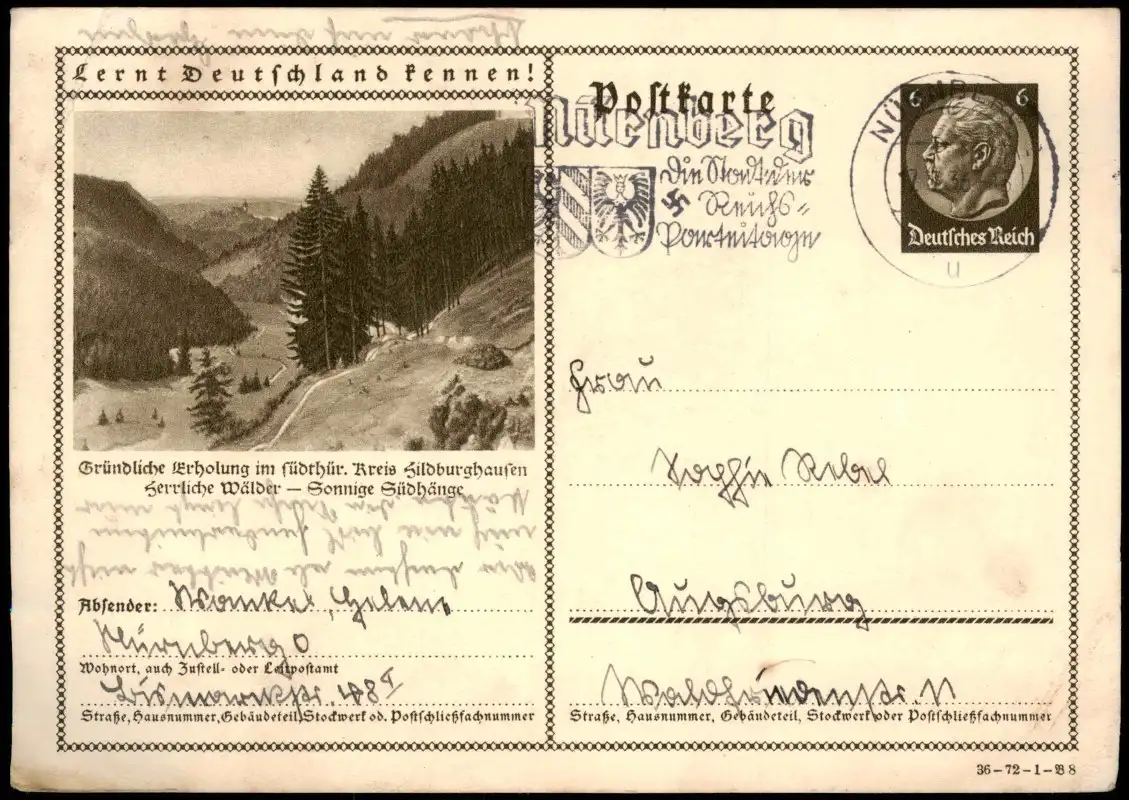 Lernt Deutschland kennen!
Gründliche Erholung im südthür. Kreis Hildburghausen
Herrliche Wälder – Sonnige Südhänge
Absender: Wankel, Helene
Nürnberg O
Wohnort, auch Zustell- oder Leitpostamt
Bismarckstr. 48 I
Straße, Hausnummer, Gebäudeteil, Stockwerk od. Postschließfachnummer
Postkarte
Nürnberg
Die Stadt der
Reichs-
Parteitage
NÜRNBERG
u
6 6
Deutsches Reich
Frau
Sophie Rebel
Augsburg
Waldfriedenstr. 11
Straße, Hausnummer, Gebäudeteil, Stockwerk oder Postschließfachnummer
36–72–1–B 8